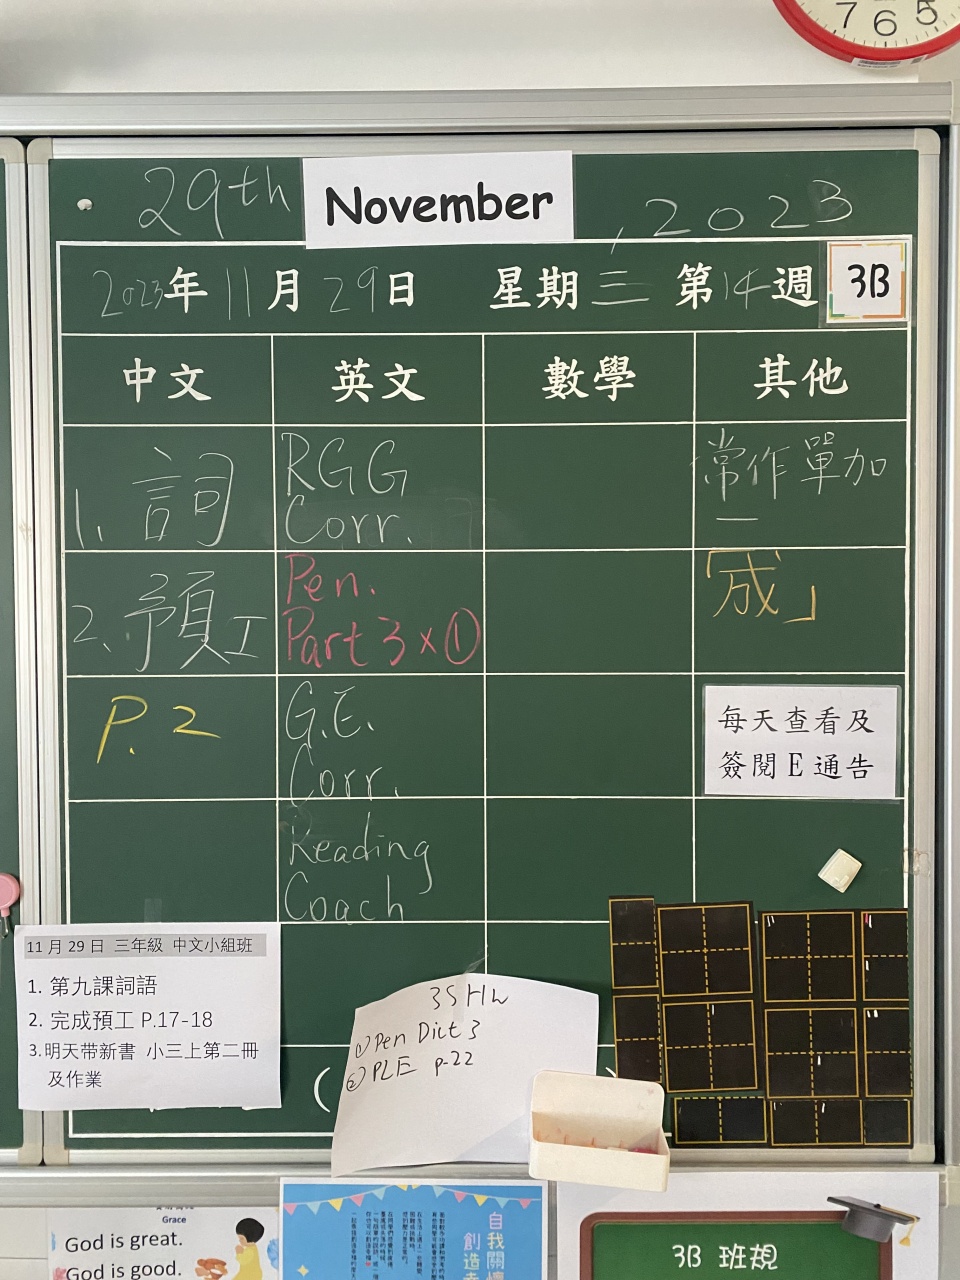 7 6 5
29th November, 2023
2023年11月29日 星期三 第14週 3B
中文 英文 數學 其他
1. 詞
2. 預工
P. 2
RGG
Corr.
Pen.
Part 3 x ①
G.E.
Corr.
Reading
Coach
常作單加
一
「成」
每天查看及
簽閱E通告
11月29日 三年級 中文小組班
1. 第九課詞語
2. 完成預工 P.17-18
3.明天带新書 小三上第二冊
及作業
(
)
3S HW
① Pen Dict 3
② PLE p-22
Grace
God is great.
God is good.
自我關懷
創造
3B 班規